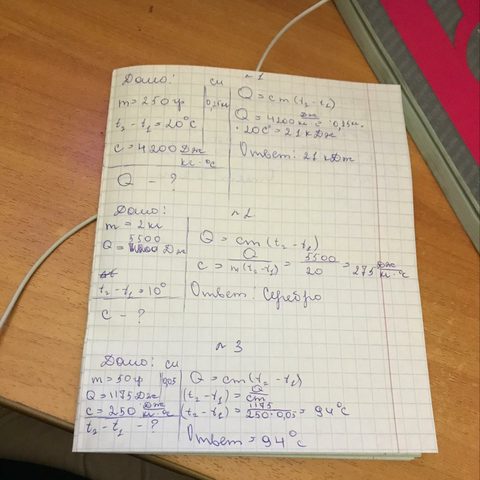 Дано: си
m = 250 гр 0,25 кг
t₂ - t₁ = 20°C
c = 4200 Дж/кг·°C
Q - ?
№1
Q = cm(t₂ - t₁)
Q = 4200 Дж/кг·°C · 0,25 кг ·
· 20°C = 21 кДж
Ответ: 21 кДж
Дано:
m = 2 кг
Q = 5500 Дж
t₂ - t₁ = 10°
c - ?
№2
Q = cm(t₂ - t₁)
c = Q/m(t₂-t₁) = 5500/20 = 275 Дж/кг·°C
Ответ: Серебро
№3
Дано: си
m = 50 гр 0,05
Q = 1175 Дж
c = 250 Дж/кг·°C
t₂ - t₁ - ?
Q = cm(t₂ - t₁)
(t₂ - t₁) = Q/cm
(t₂ - t₁) = 1175/250·0,05 = 94°C
Ответ = 94°C